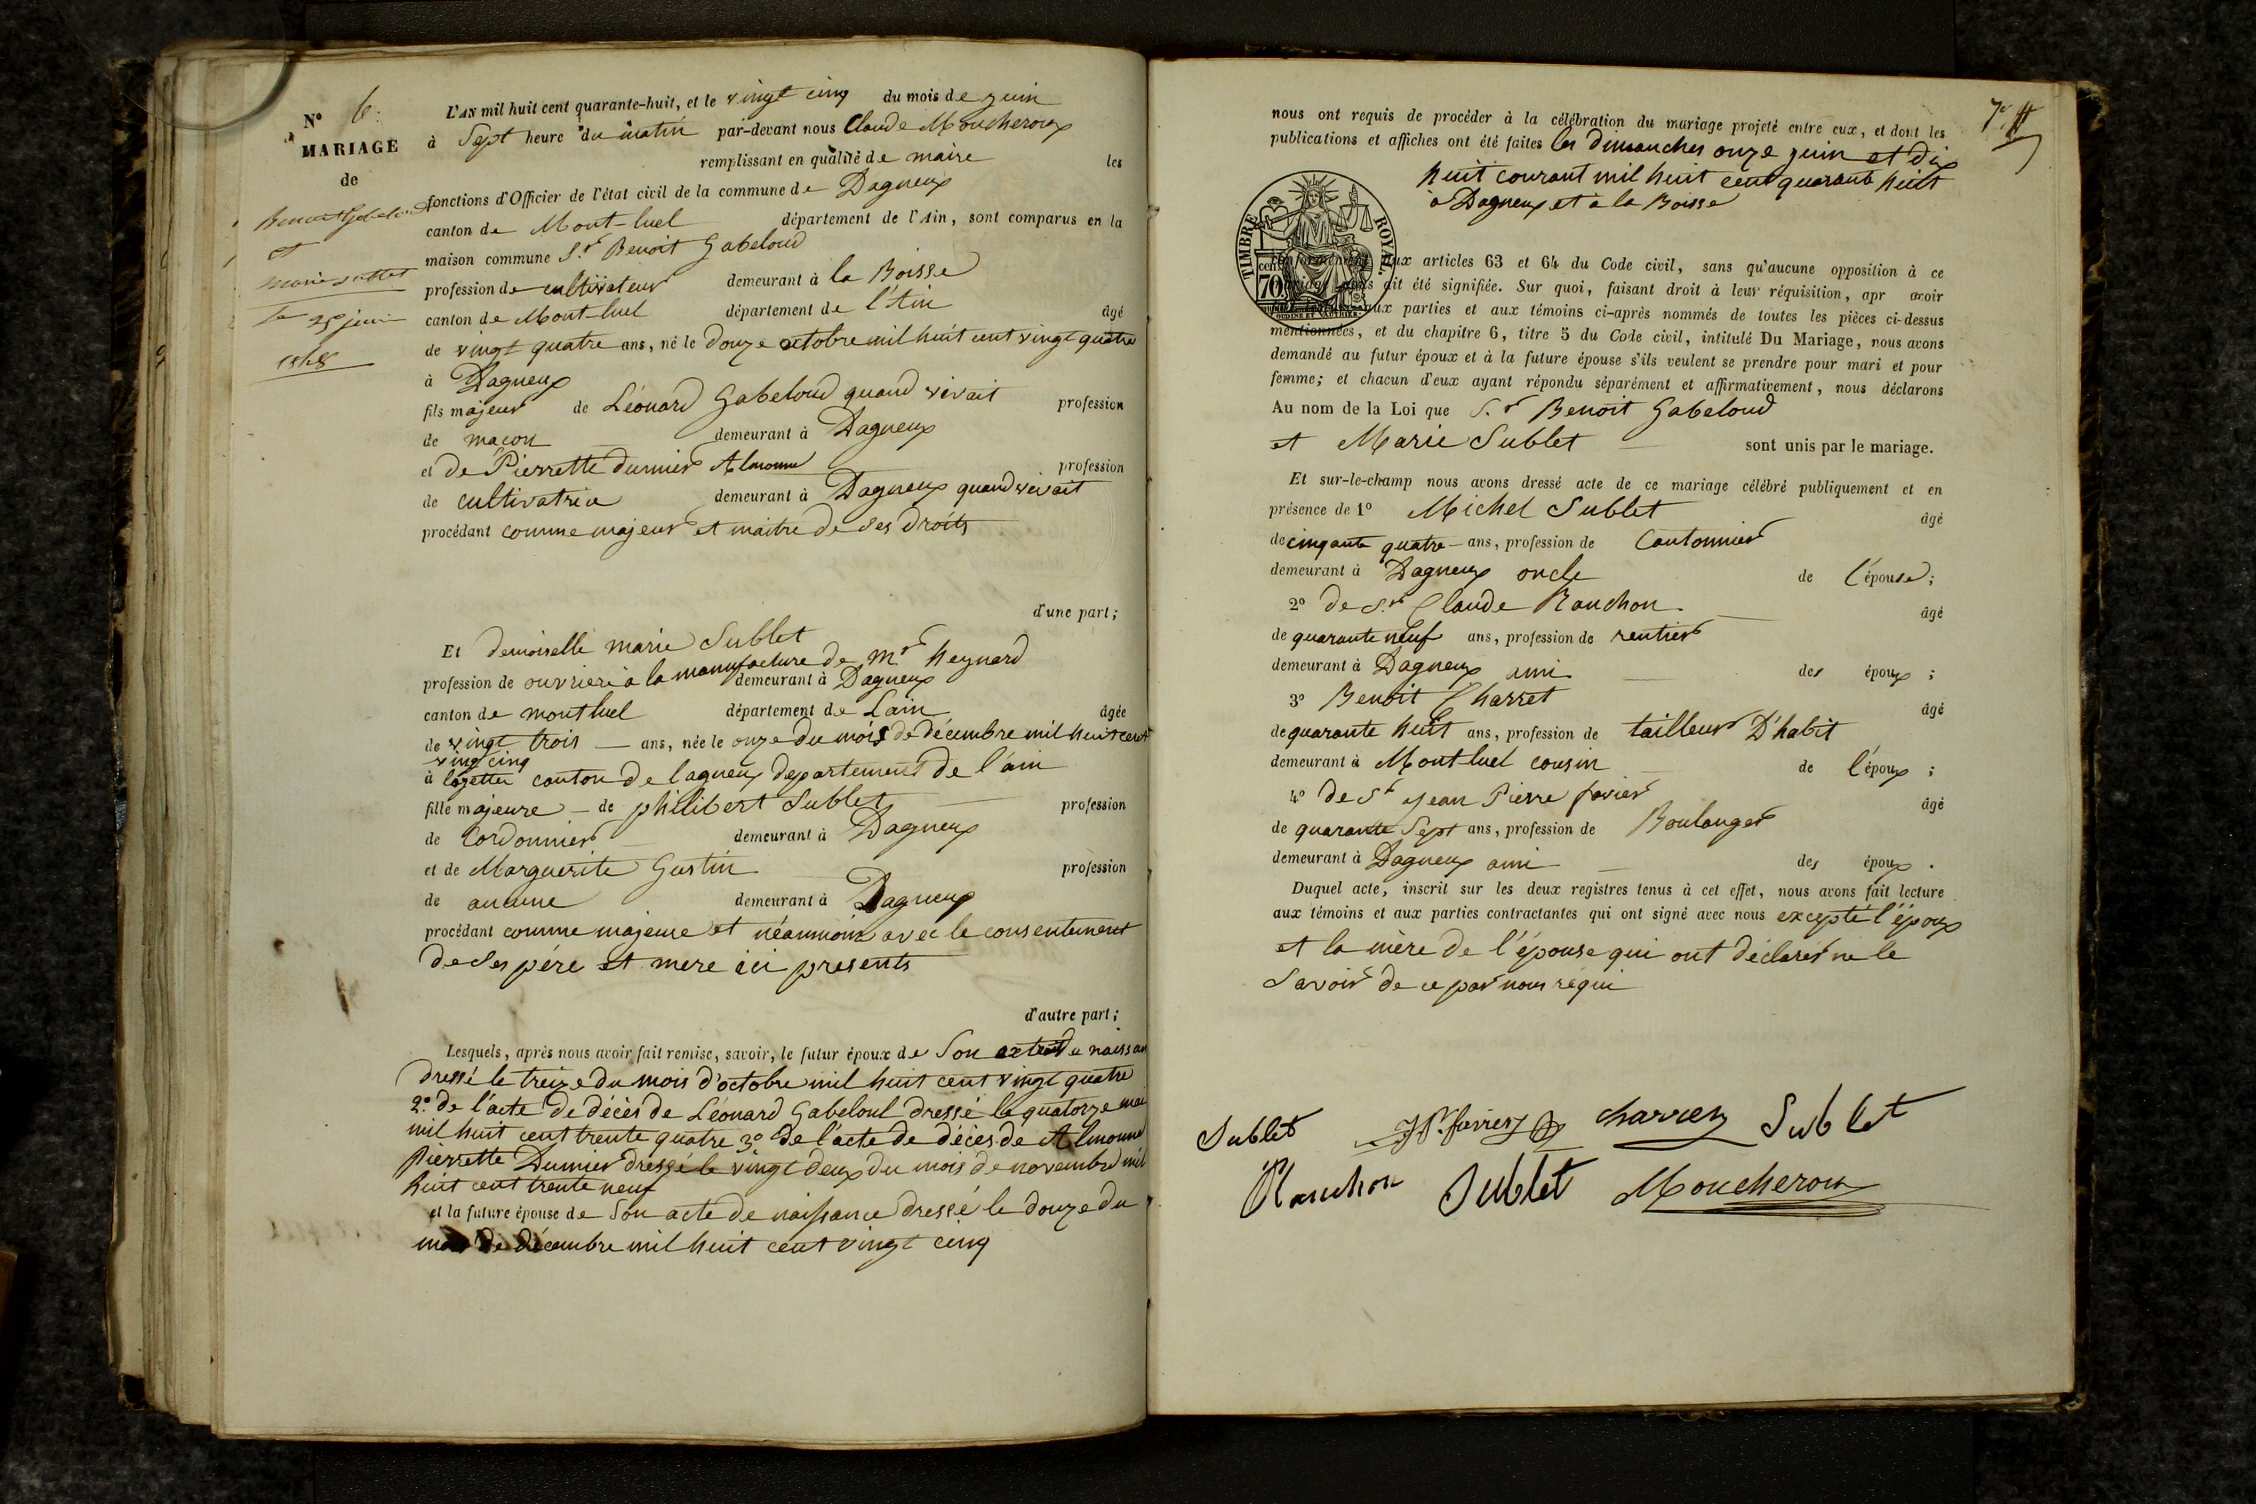 N° 6
MARIAGE
de
Benoit Gabeloud
et
marie Sublet
le 25 juin
1848
L'AN mil huit cent quarante-huit, et le vingt cinq du mois de juin
à Sept heure du matin par-devant nous Claude Moucheroux
remplissant en qualité de maire les
fonctions d'Officier de l'état civil de la commune de Dagneux
canton de Mont-luel département de l'Ain, sont comparus en la
maison commune S.r Benoit Gabeloud
profession de cultivateur demeurant à la Boisse
canton de Mont-luel département de l'Ain âgé
de vingt quatre ans, né le douze octobre mil huit cent vingt quatre
à Dagneux
fils majeur de Léonard Gabeloud quand vivait profession
de maçon demeurant à Dagneux
et de Pierrette dumier Almonne profession
de cultivatrice demeurant à Dagneux quand vivait
procédant comme majeur et maitre de ses droits
d'une part;
Et demoiselle marie Sublet
profession de ouvriere à la manufacture de Mr heynard
demeurant à Dagneux
canton de montluel département de Lain âgée
de vingt trois ans, née le onze du mois de décembre mil huit cent
vingt cinq
à lazette canton de lagneux departement de l'ain
fille majeure de philibert Sublet profession
de Cordonnier demeurant à Dagneux
et de Marguerite Gustin profession
de aucune demeurant à Dagneux
procédant comme majeure et néanmoin avec le consentement
de ses pére et mere ici presents
d'autre part;
Lesquels, après nous avoir fait remise, savoir, le futur époux de Son naissan
dressé le treize du mois d'octobre mil huit cent vingt quatre
2° de l'acte de décès de Léonard Gabeloul dressé le quatorze mai
mil huit cent trente quatre 3° de l'acte de décès de Almonne
Pierrette Dumier dressé le vingt deux du mois de novembre mil
huit cent trente neuf
et la future épouse de Son acte de naissance dressé le douze du
mois de décembre mil huit cent vingt cinq
7e
nous ont requis de procéder à la célébration du mariage projeté entre eux, et dont les
publications et affiches ont été faites les dimanches onze juin et dix
huit courant mil huit cent quarante huit
à Dagneux et a la Boisse
TIMBRE ROYAL.
70
conformément aux articles 63 et 64 du Code civil, sans qu'aucune opposition à ce
mariage nous ait été signifiée. Sur quoi, faisant droit à leur réquisition, apr avoir
aux parties et aux témoins ci-après nommés de toutes les pièces ci-dessus
mentionnées, et du chapitre 6, titre 5 du Code civil, intitulé Du Mariage, nous avons
demandé au futur époux et à la future épouse s'ils veulent se prendre pour mari et pour
femme; et chacun d'eux ayant répondu séparément et affirmativement, nous déclarons
Au nom de la Loi que S.r Benoit Gabeloud
et Marie Sublet sont unis par le mariage.
Et sur-le-champ nous avons dressé acte de ce mariage célébré publiquement et en
présence de 1° Michel Sublet âgé
de cinqante quatre ans, profession de Cantonnier
demeurant à Dagneux oncle de l'épouse;
2° de S.r Claude Rauchon âgé
de quarante neuf ans, profession de rentier
demeurant à Dagneux ami des époux;
3° Benoit Charret âgé
de quarante huit ans, profession de tailleur D'habit
demeurant à Mont-luel cousin de l'époux;
4° de Sr Jean Pierre favier âgé
de quarante Sept ans, profession de Boulanger
demeurant à Dagneux ami des époux.
Duquel acte, inscrit sur les deux registres tenus à cet effet, nous avons fait lecture
aux témoins et aux parties contractantes qui ont signé avec nous excepté l'époux
et la mère de l'épouse qui ont déclarer ne le
Savoir de ce par nous réqui
Sublet JP. favier charret Sublet
Rauchon Sublet Moucheroux